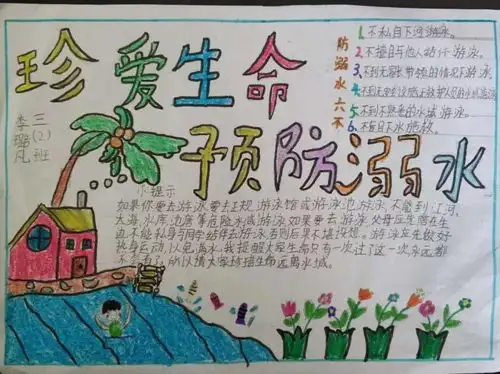 珍爱生命
预防溺水
三(2)班
李璐凡
防溺水六不
1、不私自下河游泳。
2、不擅自与他人结伴游泳。
3、不到无家长带领的情况下游泳
5、不到不熟悉的水域游泳。
6、不擅自下水施救。
小提示
如果你要去游泳要去正规游泳馆或游泳池游泳,不能到江河、
大海,水库,池塘等危险水域游泳如果要去游泳父母应先陪在身
边不能私自与同学结伴去游泳否则后果不堪设想。游泳应先做好
热身运动,以免溺水,我提醒大家生命只有一次过了这一次永远都
不会有了,所以请大家珍惜生命远离水域。